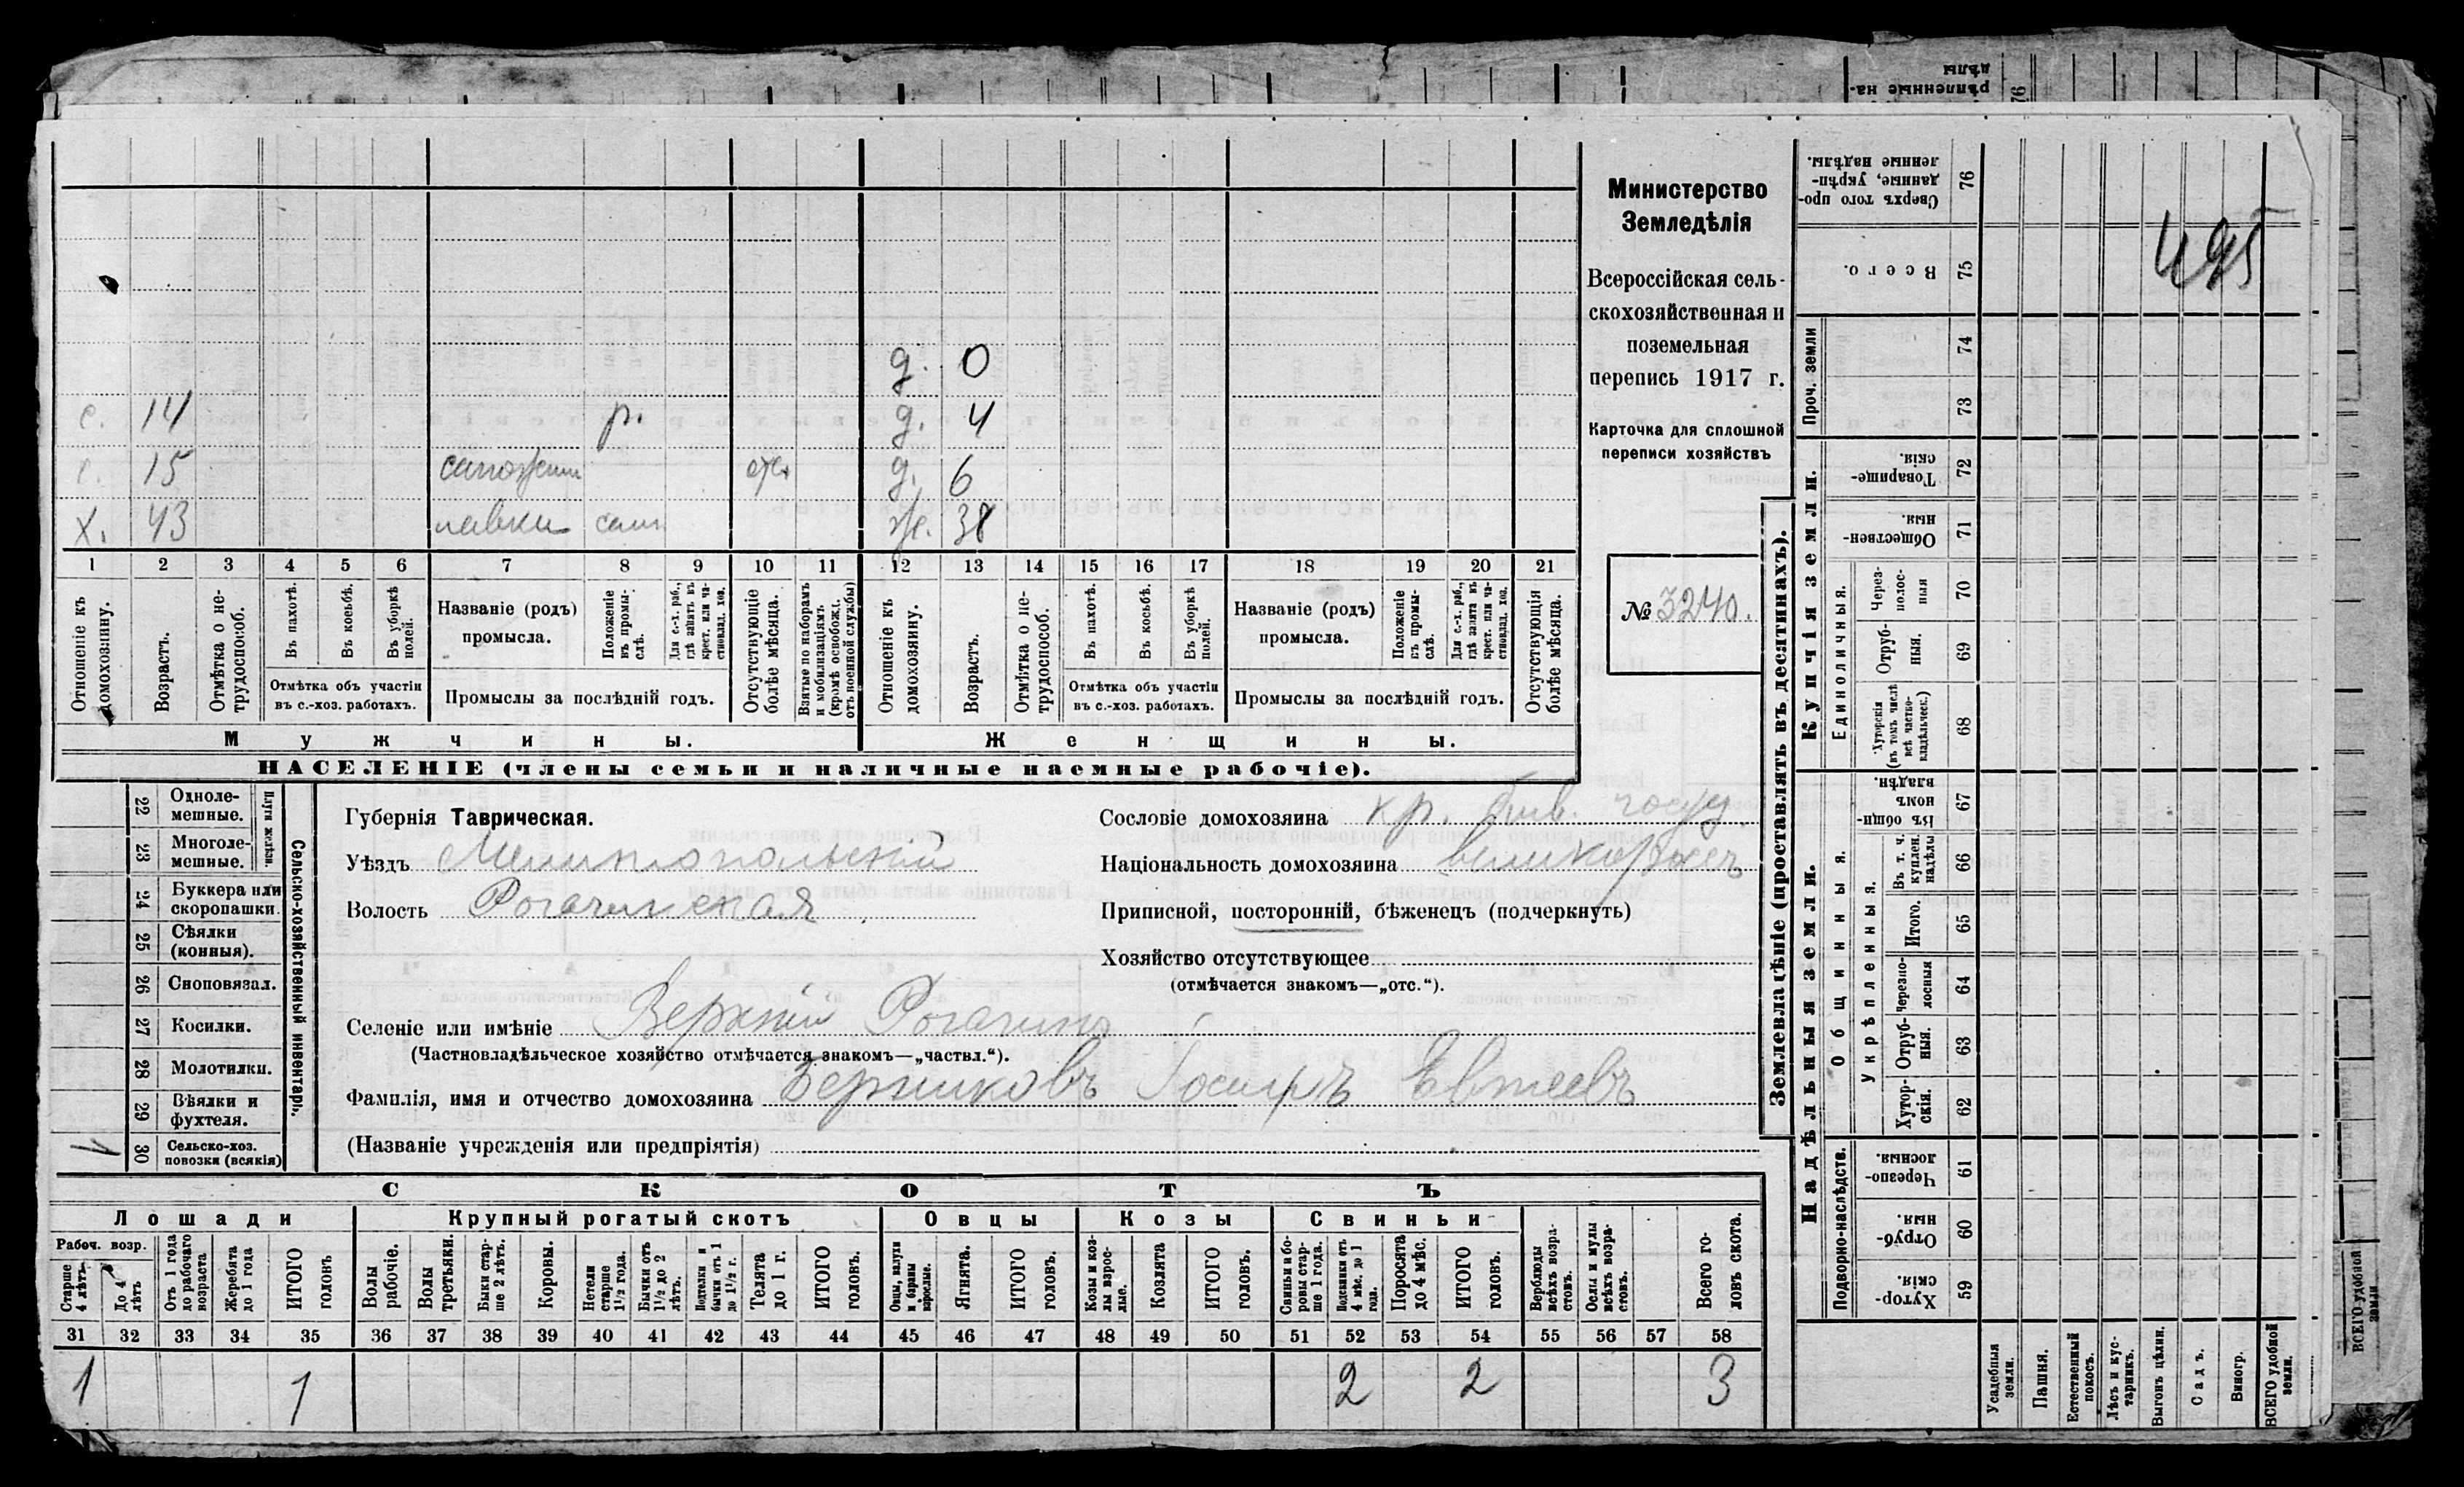 дѣлы
рѣпленные на-
76
Министерство
Земледѣлія
Всероссійская сель-
скохозяйственная и
поземельная
перепись 1917 г.
Карточка для сплошной
переписи хозяйствъ
№ 3240.
495
д. 0
с. 14 р. д. 4
с. 15 д. 6
х. 43 лавки ж. 38
1 2 3 4 5 6 7 8 9 10 11 12 13 14 15 16 17 18 19 20 21
Отношеніе къ домохозяину.
Возрастъ.
Отмѣтка о не-трудоспособ.
Въ пахотѣ.
Въ косьбѣ.
Въ уборкѣ полей.
Отмѣтка объ участіи въ с.-хоз. работахъ.
Названіе (родъ) промысла.
Положеніе въ промы-слѣ.
Для с.-х. раб., гдѣ занятъ въ крест. или ча-стновлад. хоз.
Промыслы за послѣдній годъ.
Отсутствующіе болѣе мѣсяца.
Взятые по наборамъ и мобилизаціямъ (кромѣ освобожд. отъ военной службы)
Отношеніе къ домохозяину.
Возрастъ.
Отмѣтка о не-трудоспособ.
Въ пахотѣ.
Въ косьбѣ.
Въ уборкѣ полей.
Отмѣтка объ участіи въ с.-хоз. работахъ.
Названіе (родъ) промысла.
Положеніе въ промы-слѣ.
Для с.-х. раб., гдѣ занята въ крест. или ча-стновлад. хоз.
Промыслы за послѣдній годъ.
Отсутствующія болѣе мѣсяца.
Мужчины. Женщины.
НАСЕЛЕНІЕ (члены семьи и наличные наемные рабочіе).
Сельско-хозяйственный инвентарь.
22 Одноле-мешные.
23 Многоле-мешные.
24 Буккера или скоропашки.
25 Сѣялки (конныя).
26 Сноповязал.
27 Косилки.
28 Молотилки.
29 Вѣялки и фухтеля.
30 Сельско-хоз. повозки (всякія)
Губернія Таврическая.
Уѣздъ Мелитопольскій
Волость Рогачинская
Сословіе домохозяина кр. быв. госуд.
Національность домохозяина великороссъ
Приписной, посторонній, бѣженецъ (подчеркнуть)
Хозяйство отсутствующее
(отмѣчается знакомъ—„отс.“).
Селеніе или имѣніе Верхній Рогачикъ
(Частновладѣльческое хозяйство отмѣчается знакомъ—„частвл.“).
Фамилія, имя и отчество домохозяина Іосифъ Евтеевъ
(Названіе учрежденія или предпріятія)
СКОТЪ
Лошади Крупный рогатый скотъ Овцы Козы Свиньи
Рабоч. возр.
Старше 4 лѣтъ.
До 4 лѣтъ
Отъ 1 года до рабочаго возраста
Жеребята до 1 года
ИТОГО головъ
Волы рабочіе.
Волы третьяки.
Быки стар-ше 2 лѣтъ.
Коровы.
Нетели старше 1½ года.
Бычки отъ 1½ до 2 лѣтъ.
Подтелки и бычки отъ 1 до 1½ г.
Телята до 1 г.
ИТОГО головъ.
Овцы, валухи и бараны взрослые.
Ягнята.
ИТОГО головъ.
Козы и коз-лы взрос-лые.
Козлята
ИТОГО головъ.
Свиньи и бо-ровы стар-ше 1 года.
Подсвинки отъ 4 мѣс. до 1 года.
Поросята до 4 мѣс.
ИТОГО головъ.
Верблюды всѣхъ возра-стовъ.
Ослы и мулы всѣхъ возра-стовъ.
Всего го-ловъ скота.
31 32 33 34 35 36 37 38 39 40 41 42 43 44 45 46 47 48 49 50 51 52 53 54 55 56 57 58
1 1 2 2 3
Землевладѣніе (проставлять въ десятинахъ).
Сверхъ того про-данные, укрѣп-ленные надѣлы. 76
Всего. 75
Проч. земли 74 73
Купчія земли.
Товарище-скія. 72
Обществен-ныя. 71
Единоличныя.
Через-полос-ныя 70
Отруб-ныя. 69
Хуторскія (въ томъ числѣ всѣ частно-владѣльческ.) 68
Надѣльныя земли.
Общинныя.
Въ общин-номъ владѣн. 67
Укрѣпленныя.
Въ т. ч. куплен. надѣлы 66
Итого. 65
Черезпо-лосныя 64
Отруб-ныя. 63
Хутор-скія. 62
Подворно-наслѣдств.
Черезпо-лосныя. 61
Отруб-ныя. 60
Хутор-скія. 59
Усадебныя земли.
Пашня.
Естественный покосъ.
Лѣсъ и кус-тарникъ.
Выгонъ цѣлин.
Садъ.
Виногр.
ВСЕГО удобной земли.
ВСЕГО удобной земли